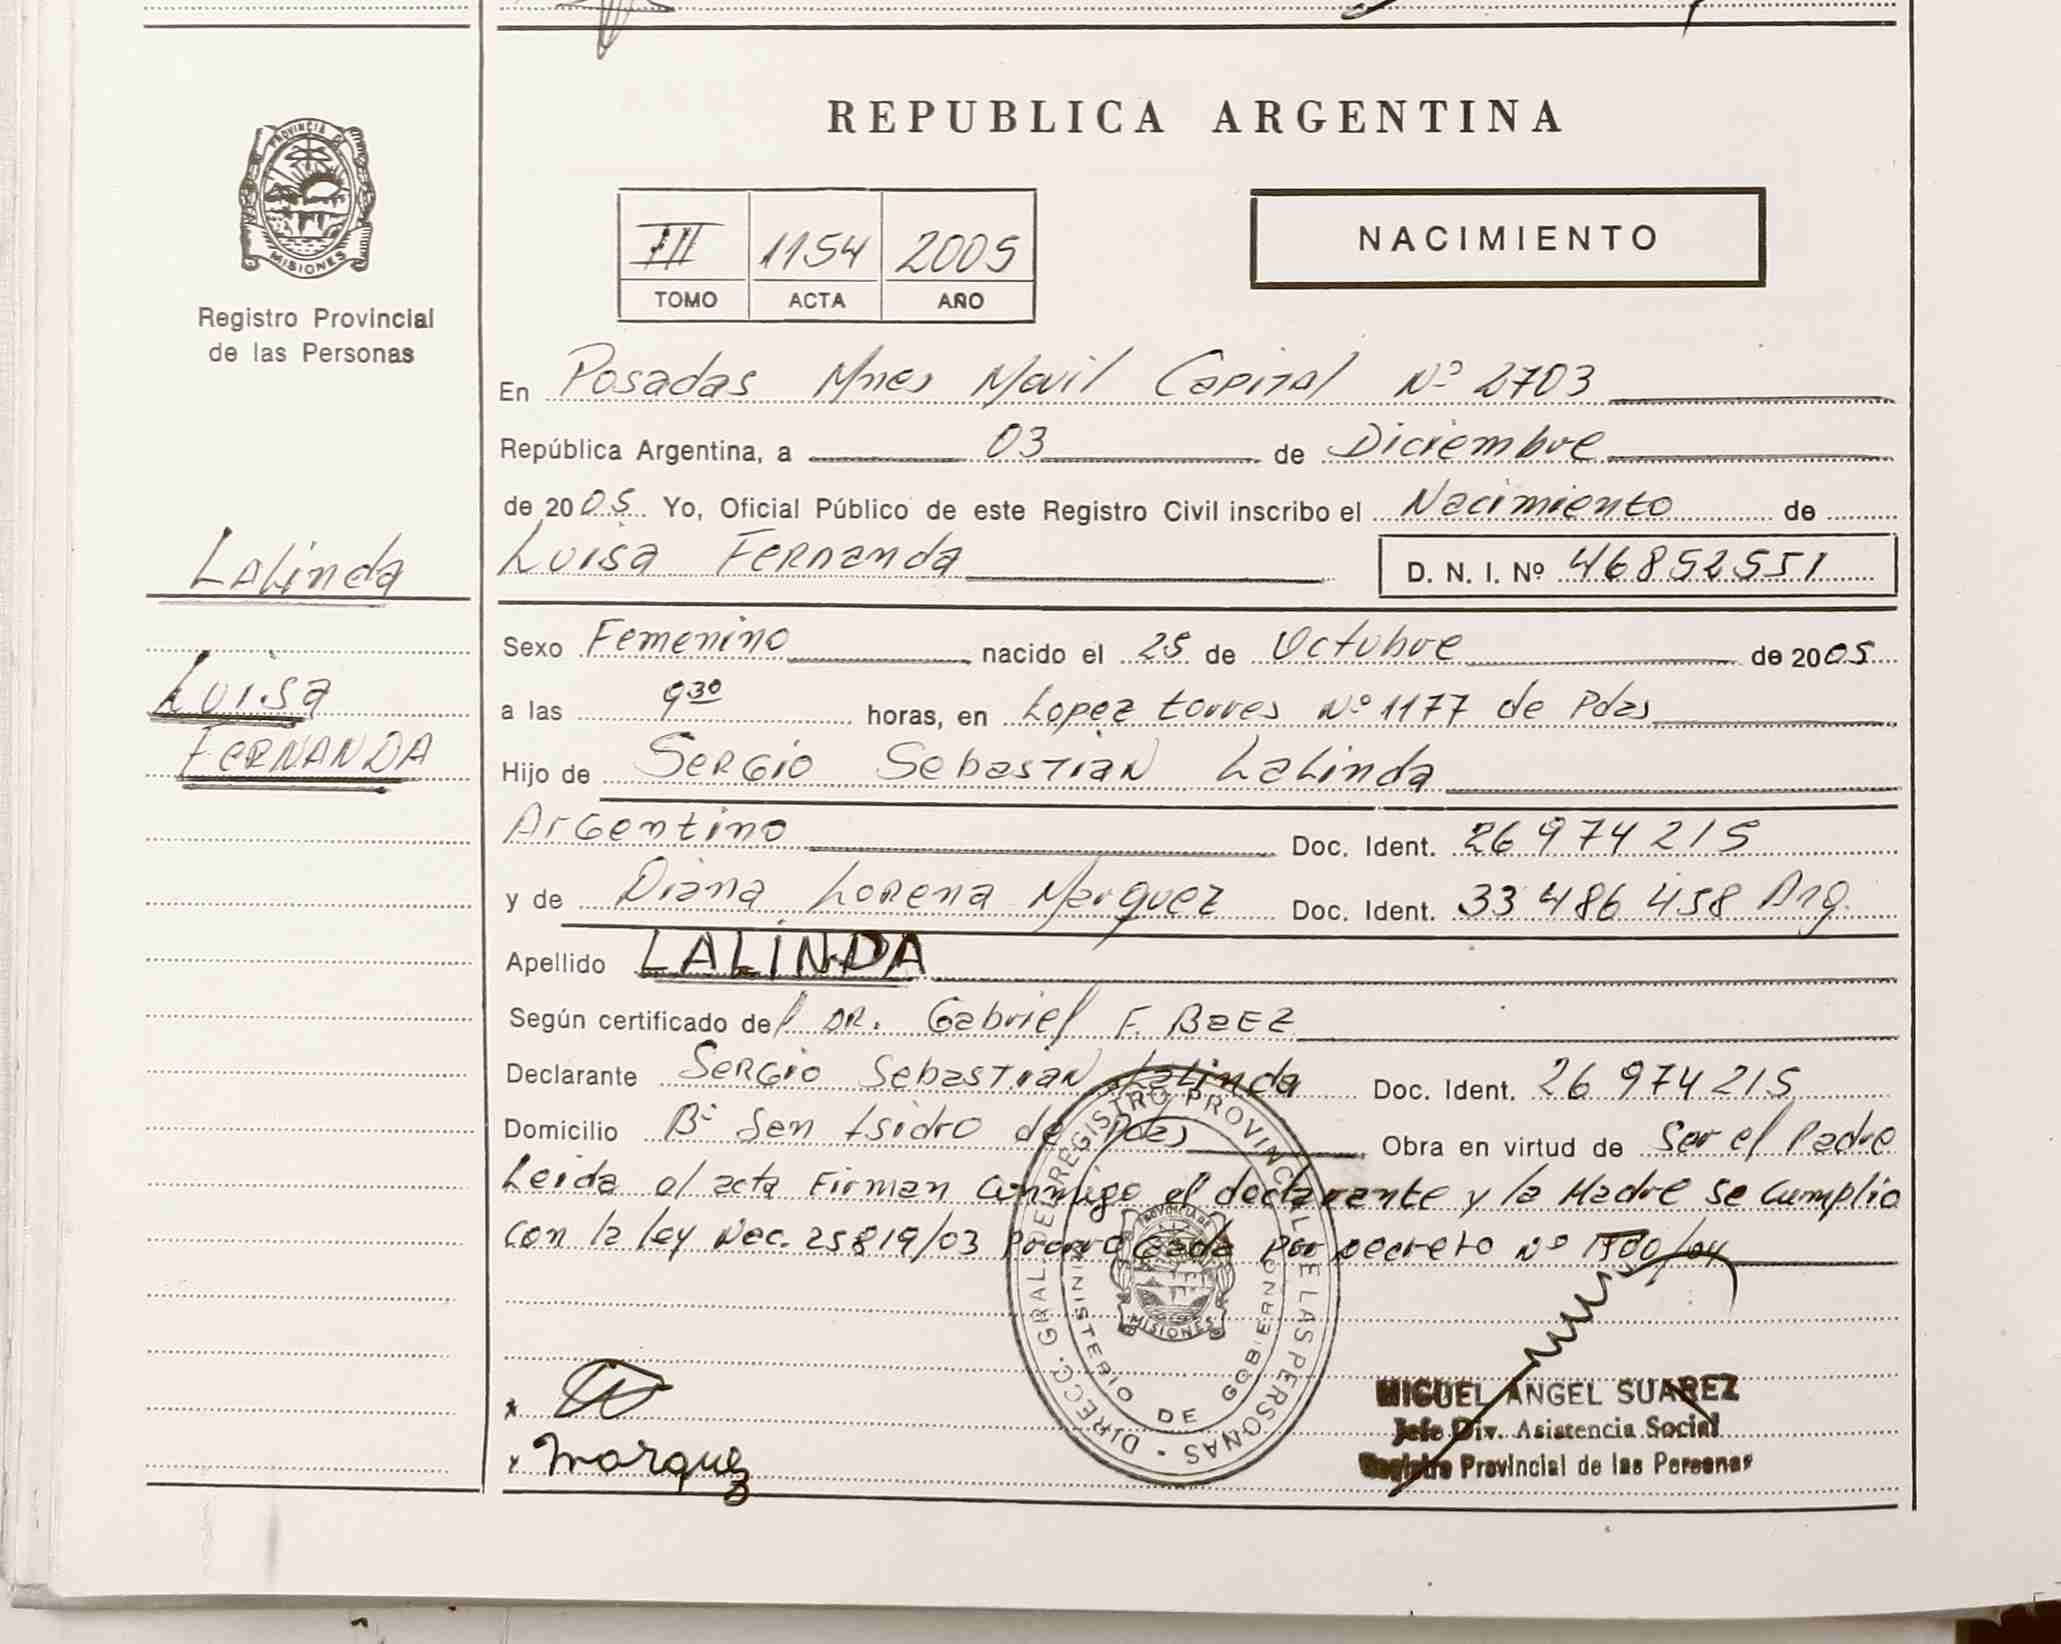 PROVINCIA DE
MISIONES
Registro Provincial
de las Personas
Lalinda
Luisa
FERNANDA
REPUBLICA ARGENTINA
III 1154 2005
TOMO ACTA AÑO
NACIMIENTO
En Posadas Mnes Movil Capital Nº 2703
República Argentina, a 03 de Diciembre
de 2005. Yo, Oficial Público de este Registro Civil inscribo el Nacimiento de
Luisa Fernanda D. N. I. Nº 46852551
Sexo Femenino nacido el 25 de Octubre de 2005
a las 9 30 horas, en Lopez torres Nº 1177 de Pdas
Hijo de Sergio Sebastian Lalinda
Argentino Doc. Ident. 26 974 215
y de Diana Lorena Marquez Doc. Ident. 33 486 458 Arg.
Apellido LALINDA
Según certificado del DR. Gabriel F. Baez
Declarante Sergio Sebastian Lalinda Doc. Ident. 26 974 215
Domicilio Bº San Isidro de Pdas Obra en virtud de Ser el Padre
Leida el acta Firman Conmigo el declarante y la Madre se Cumplio
Con la ley Nac. 25819/03 Prorrogada por Decreto Nº
DIRECC. GRAL. DEL REGISTRO PROVINCIAL DE LAS PERSONAS
MINISTERIO DE GOBIERNO
PROVINCIA DE
MISIONES
x
x Marquez
MIGUEL ANGEL SUAREZ
Jefe Div. Asistencia Social
Registro Provincial de las Personas